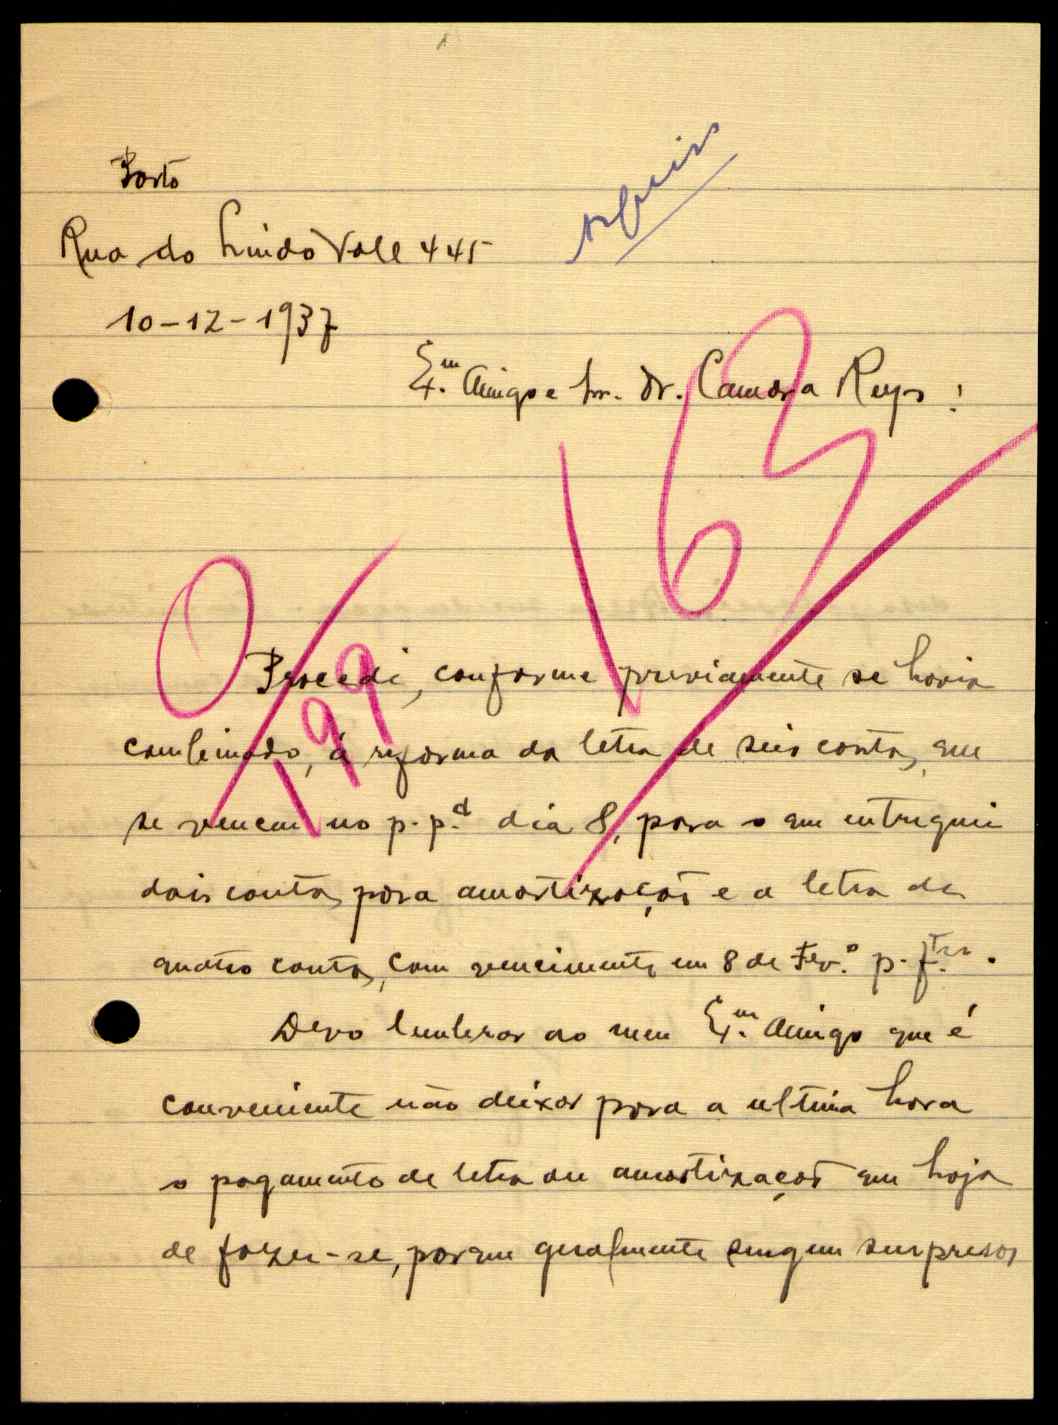 Porto
Rua do Lindo Vale 445
10-12-1937
Ex.mo Amigo e Sr. Dr. Camara Reys!
163
0/199
Procedi, conforme previamente se havia
combinado, á reforma da letra de seis contos, que
se venceu no p.p.do dia 8, para o que entreguei
dois contos para amortização e a letra de
quatro contos, com vencimento em 8 de Fev.o p. f.
Devo lembrar ao meu Ex.mo Amigo que é
conveniente não deixar para a ultima hora
o pagamento de letra ou amortização que haja
de fazer-se, porque geralmente surgem surpresas